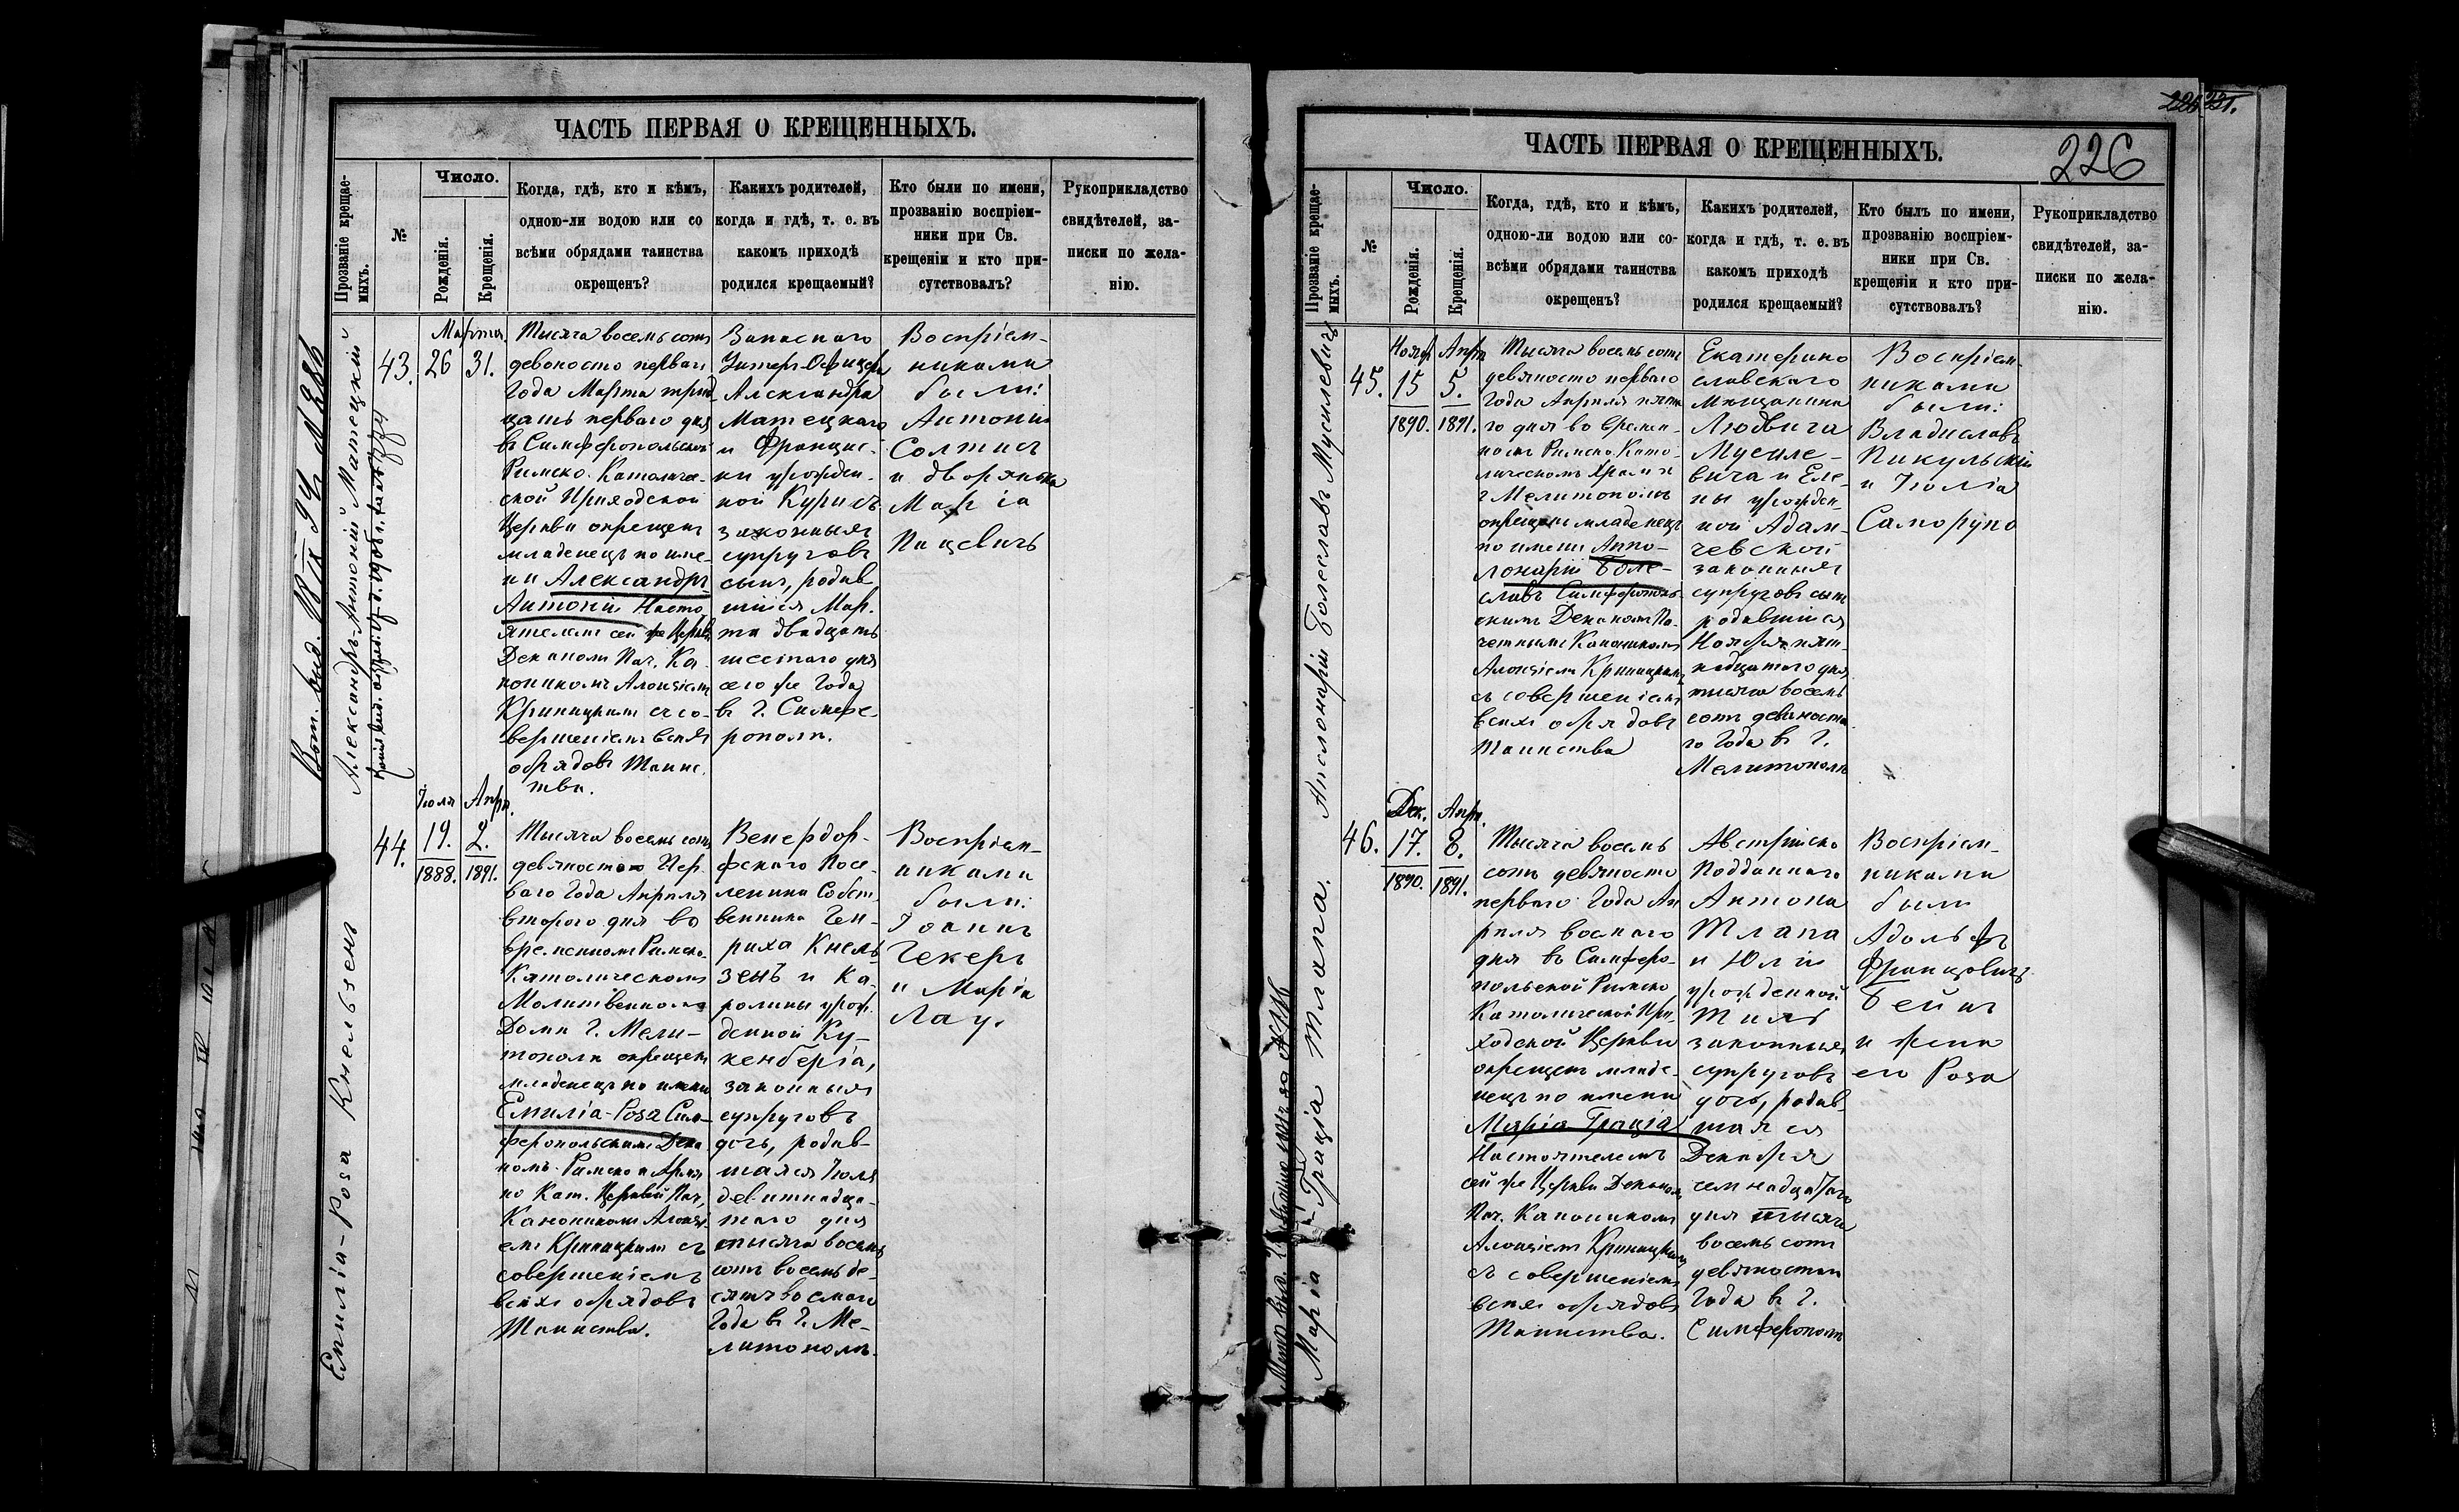 ЧАСТЬ ПЕРВАЯ О КРЕЩЕННЫХЪ.
Прозваніе крещае-
мыхъ.
№
Число.
Рожденія.
Крещенія.
Когда, гдѣ, кто и кѣмъ,
одною-ли водою или со
всѣми обрядами таинства
окрещенъ?
Какихъ родителей,
когда и гдѣ, т. е. въ
какомъ приходѣ
родился крещаемый?
Кто были по имени,
прозванію воспріем-
ники при Св.
крещеніи и кто при-
сутствовалъ?
Рукоприкладство
свидѣтелей, за-
писки по жела-
нію.
Александръ-Антоній Матецкій
43.
Марта
26
31.
Тысяча восемь сотъ
девяносто перваго
Года Марта трид-
цать перваго дня
въ Симферопольской
Римско-Католиче-
ской Приходской
Церкви окрещенъ
младенецъ по име-
ни Александръ
Антоній Насто-
ятелемъ сей же Церкви
Деканомъ Поч. Ка-
ноникомъ Алоизіемъ
Криницкимъ съ со-
вершеніемъ всѣхъ
обрядовъ Таинс-
тва.
Запаснаго
Унтеръ-Офицера
Александра
Матецкаго
и Францис-
ки урожден-
ной Курисъ
законныхъ
супруговъ
сынъ, родив-
шійся Мар-
та двадцать
шестаго дня
сего же Года
въ Г. Симфе-
рополѣ.
Воспріем-
никами
были:
Антоній
Солтыс
и дворянка
Марія
Пацевичъ
Емилія-Роза Кнельзенъ
44.
Іюля
19.
1888.
Апр.
2.
1891.
Тысяча восемь сотъ
девяносто Пер-
ваго Года Апрѣля
втораго дня во
временномъ Римско-
Католическомъ
Молитвенномъ
Домѣ Г. Мели-
тополя окрещенъ
младенецъ по имени
Емилія-Роза Сим-
феропольскимъ Дека-
номъ Римско и Армян-
но Кат. Церквей Поч.
Каноникомъ Алоизі-
емъ Криницкимъ съ
совершеніемъ
всѣхъ обрядовъ
Таинства.
Венердор-
фскаго Посе-
ленина Собст-
венника Ген-
риха Кнель-
зенъ и Ка-
ролины урож-
денной Ку-
кенберга,
законныхъ
супруговъ
дочь, родив-
шаяся Іюля
девятнадца-
таго дня
тысяча восемь
сотъ восемьде-
сятъ восьмаго
Года въ Г. Ме-
литополѣ.
Воспріем-
никами
были:
Іоаннъ
Гекеръ
и Марія
Лау.
ЧАСТЬ ПЕРВАЯ О КРЕЩЕННЫХЪ.
226
Прозваніе крещае-
мыхъ.
№
Число.
Рожденія.
Крещенія.
Когда, гдѣ, кто и кѣмъ,
одною-ли водою или со-
всѣми обрядами таинства
окрещенъ?
Какихъ родителей,
когда и гдѣ, т. е. въ
какомъ приходѣ
родился крещаемый?
Кто былъ по имени,
прозванію воспріем-
ники при Св.
крещеніи и кто при-
сутствовалъ?
Рукоприкладство
свидѣтелей, за-
писки по жела-
нію.
Аполонарій Болеславъ Мусилевичъ
45.
Ноябр
15
1890.
Апр
5.
1891.
Тысяча восемь сотъ
девяносто перваго
Года Апрѣля пята-
го дня во времен-
номъ Римско Като-
лическомъ Храмѣ
г. Мелитополѣ
окрещенъ младенецъ
по имени Аппо-
лонарій Боле-
славъ Симферополь-
скимъ Деканомъ По-
четнымъ Каноникомъ
Алоизіемъ Криницкимъ
съ совершеніемъ
всѣхъ обрядовъ
Таинства
Екатерино
славскаго
Мѣщанина
Людвига
Мусиле-
вича и Еле-
ны урожден-
ной Адам-
чевской
законныхъ
супруговъ сынъ
родившійся
Ноября пят-
надцатаго дня
тысяча восемь
сотъ девяноста-
го Года въ Г.
Мелитополѣ
Воспріем-
никами
были:
Владиславъ
Пикульскій
и Юлія
Саморупо
Марія-Грація Тлапа.
46.
Дек.
17.
1890.
Апр.
8.
1891.
Тысяча восемь
сотъ девяносто
перваго Года Ап
рѣля восьмаго
дня въ Симферо-
польской Римско
Католической При-
ходской Церкви
окрещенъ младе-
нецъ по имени
Марія Грація
Настоятелемъ
сей же Церкви Деканомъ
Поч. Каноникомъ
Алоизіемъ Криницкимъ
съ совершеніемъ
всѣхъ обрядовъ
Таинства.
Австрійско
Подданнаго
Антона
Тлапа
и Юліи
урожденной
Тиль
законныхъ
супруговъ
дочь, родив-
шаяся
Декабря
семнадцатаго
дня тысяча
восемь сотъ
девяностаго
Года въ Г.
Симферополѣ
Воспріем-
никами
были
Адольфъ
Францовичъ
Бейнъ
и жена
его Роза